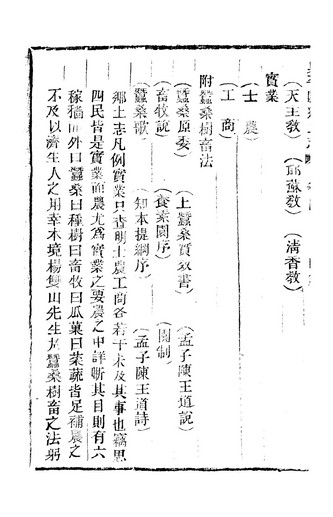 （天主敎）（耶蘇敎）（清香敎）
實業
（士農）
（工商）
附蠶桑樹畜法
（蠶桑原委）（上蠶桑質疑書）（孟子陳王道說）
（畜牧說）（養素園序）（園制）
（蠶桑歌）（知本提綱序）（孟子陳王道詩）
鄉土志凡例實業只查明士農工商各若干未及其事也竊思
四民皆是實業而農尤爲實業之要農之中詳晰其目則有六
稼穡而外曰蠶桑曰種樹曰畜牧曰瓜菓曰菜蔬皆足補農之
不及以濟生人之用幸本境楊雙山先生於蠶桑樹畜之法躬